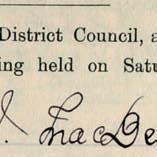 District Council, a
ing held on Satu
J. MacDe